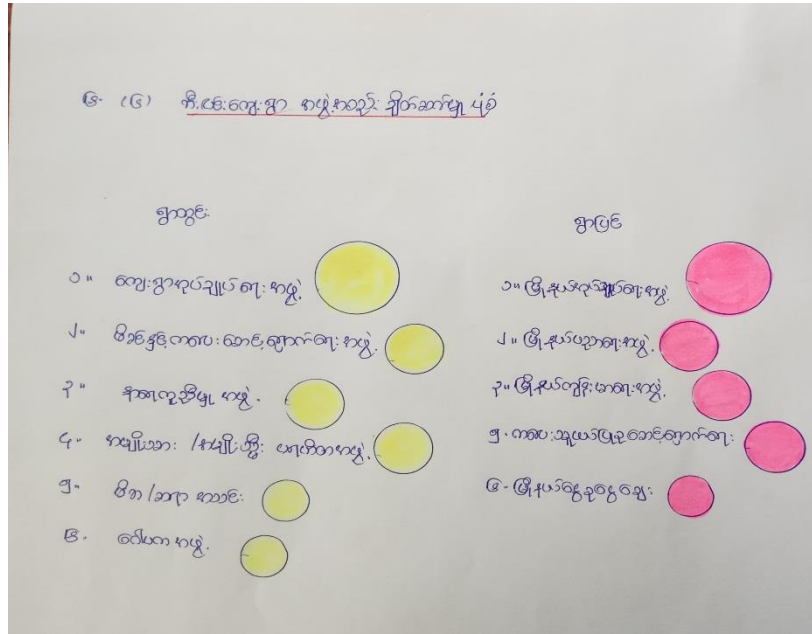 ၆. (၆) ကျေးရွာ အဖွဲ့အစည်း ချိတ်ဆက်မှု ပုံစံ
ရွာတွင်း
၁။ ကျေးရွာအုပ်ချုပ်ရေးအဖွဲ့
၂။ မိခင်နှင့်ကလေးစောင့်ရှောက်ရေးအဖွဲ့
၃။ နာရေးကူညီမှု အဖွဲ့
၄။ အမျိုးသား /အမျိုးသမီး ပရဟိတအဖွဲ့
၅။ မိဘ/ဆရာ အသင်း
၆. ဂေါပကအဖွဲ့
ရွာပြင်
၁။ မြို့နယ်အုပ်ချုပ်ရေးအဖွဲ့
၂။ မြို့နယ်ပညာရေးအဖွဲ့
၃။ မြို့နယ်ကျန်းမာရေးအဖွဲ့
ကလေးသူငယ်ပြုစုစောင့်ရှောက်ရေး
မြို့နယ်ငွေစုငွေချေး